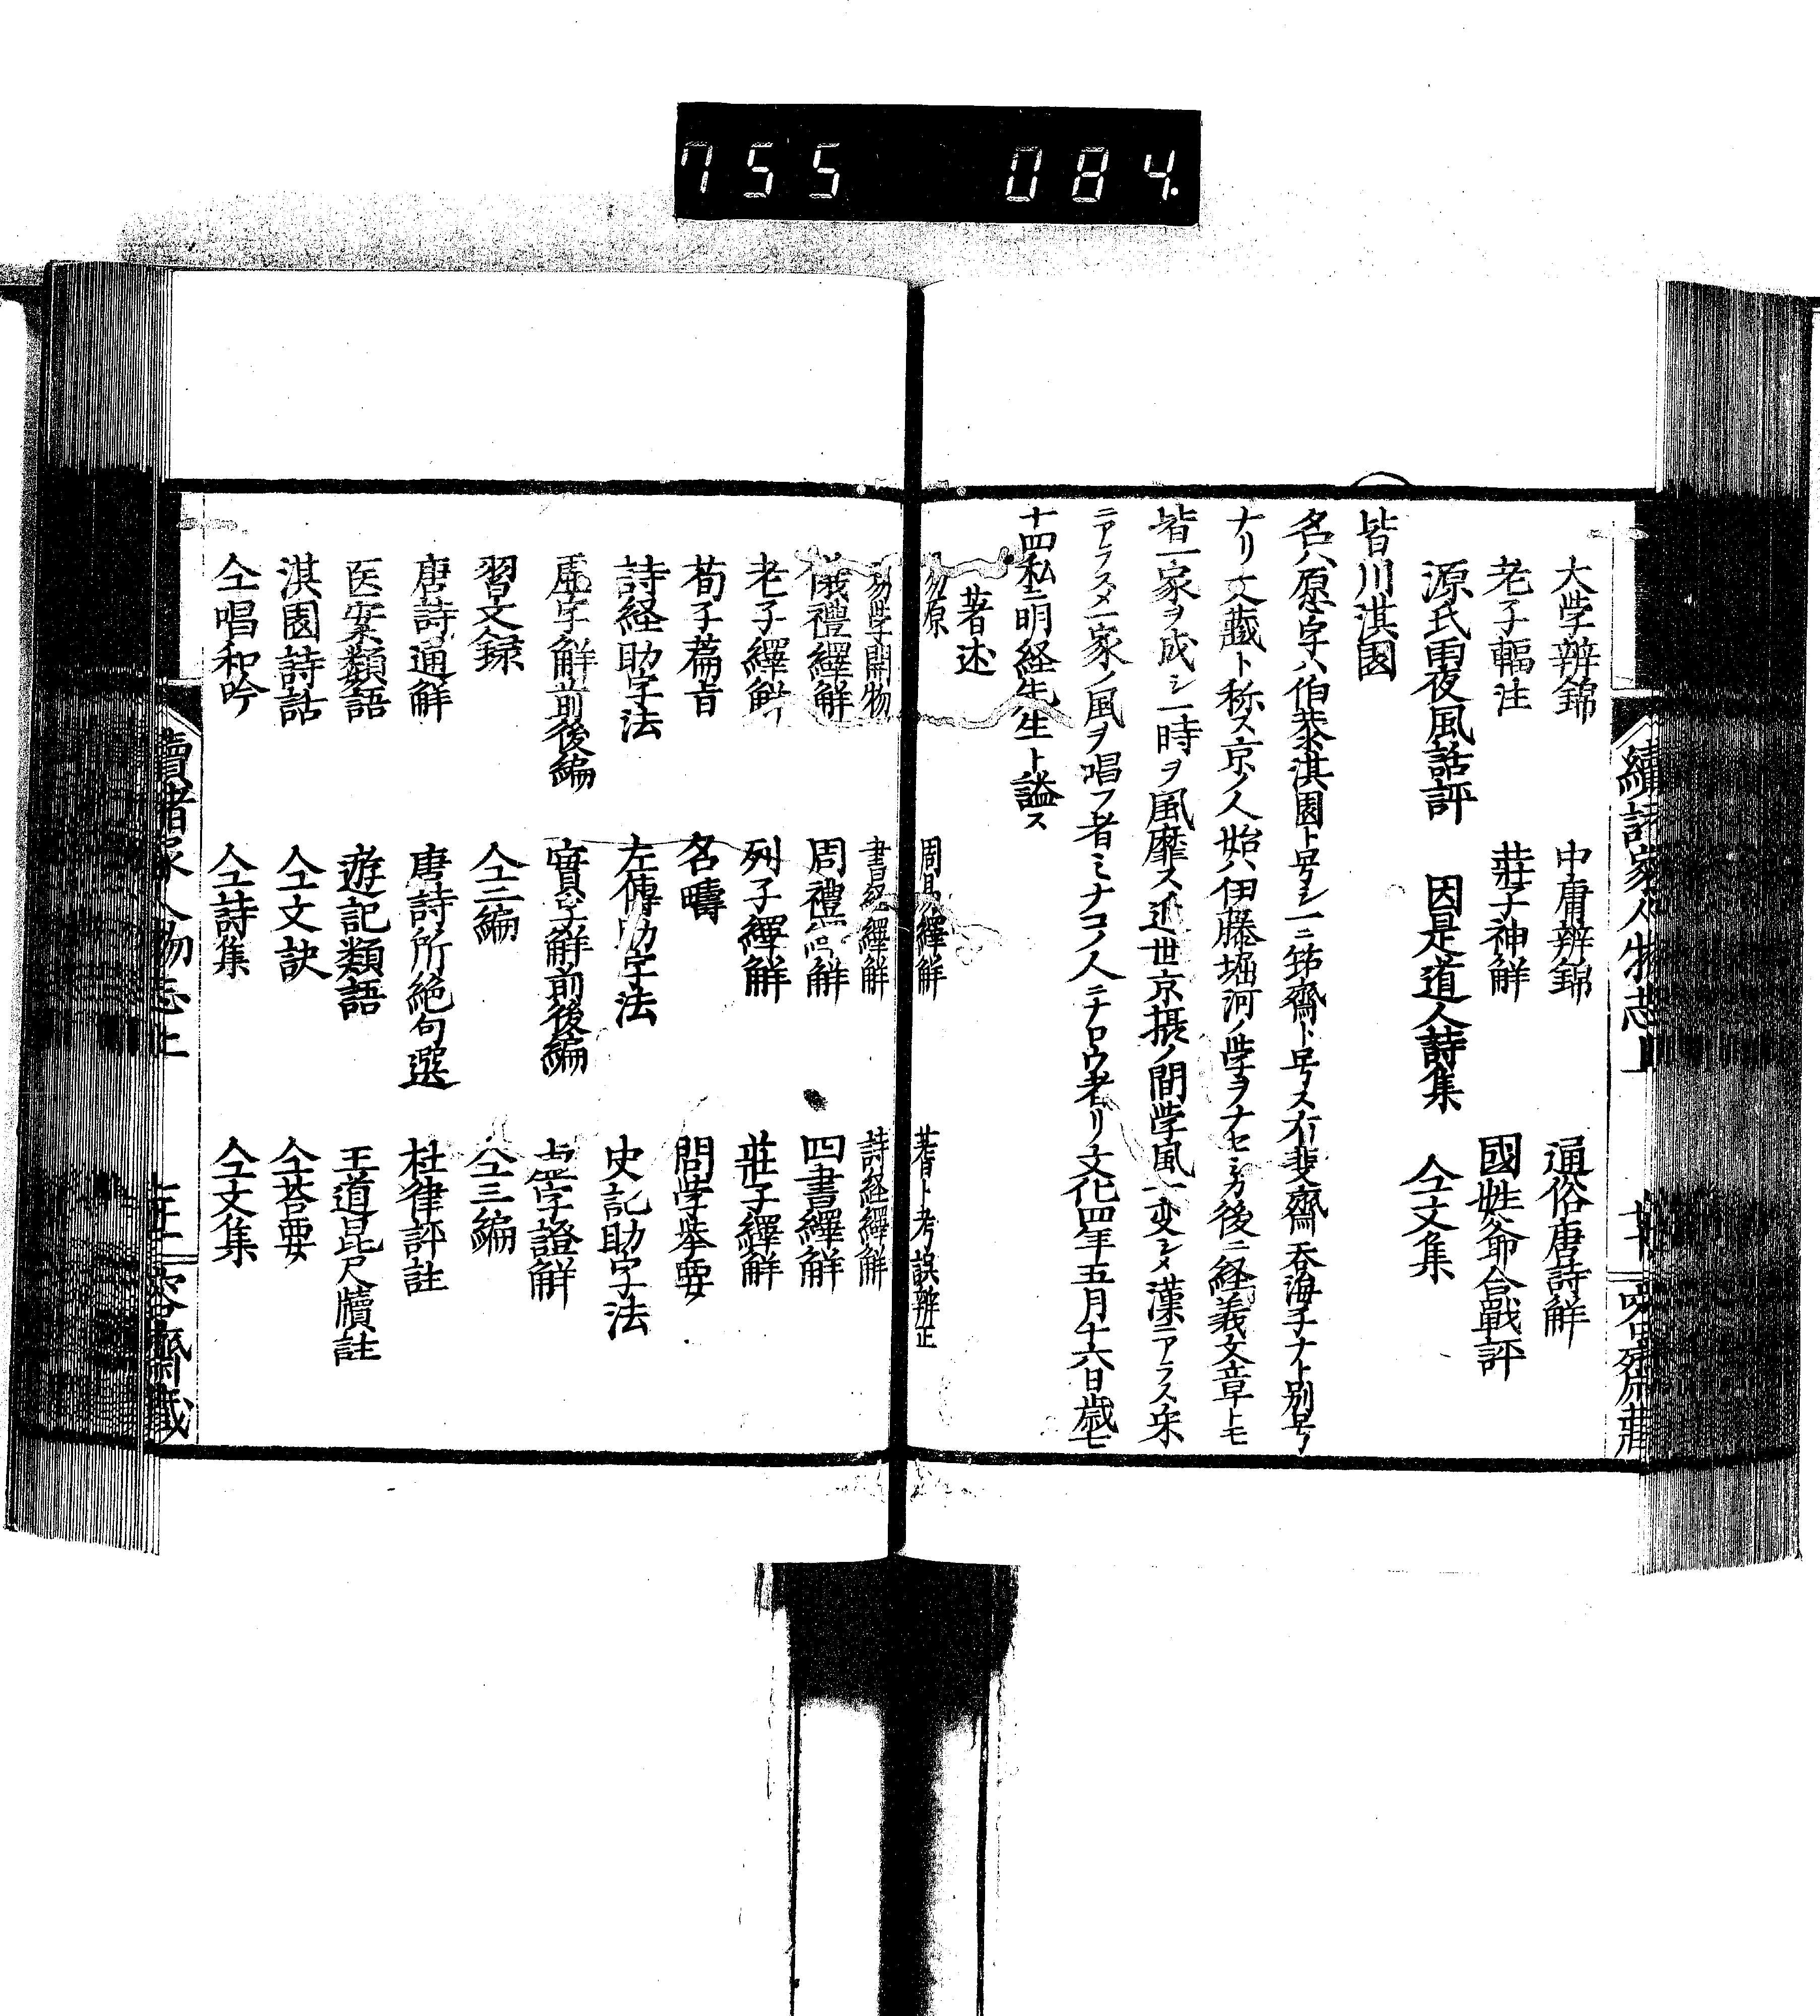 755 084
大学辨錦 中庸辨錦 通俗唐詩解
老子輻注 莊子神解 國姓爺合戰評
源氏雨夜風話評 因是道人詩集 仝文集
皆川淇園
名ハ愿字ハ伯恭淇園ト号シ一ニ筇齋ト号ス有斐齋呑海子ナト別号ノ
ナリ文藏ト称ス京ノ人始ハ伊藤堀河ノ学ヲナセシカ後ニ経義文章トモ
皆一家ヲ成シ一時ヲ風靡ス近世京摂ノ間学風一変シメ漢ニアラス宋
ニアラス一家ノ風ヲ唱フ者ミナコノ人ニナロウ者リ文化四年五月十六日歳七
十四私ニ明経先生ト謚ス
著述
易原 周易繹解 蓍卜考誤辨正
易学開物 書経繹解 詩経繹解
儀禮繹解 周禮繹解 四書繹解
老子繹解 列子繹解 莊子繹解
荀子篇旨 名疇 問学挙要
詩経助字法 左傳助字法 史記助字法
虚字解前後編 實字解前後編 虚字證解
習文録 仝二編 仝三編
唐詩通解 唐詩所絶句選 杜律評註
医案類語 遊記類語 王道昆尺牘註
淇園詩話 仝文訣 仝荅要
仝唱和吟 仝詩集 仝文集